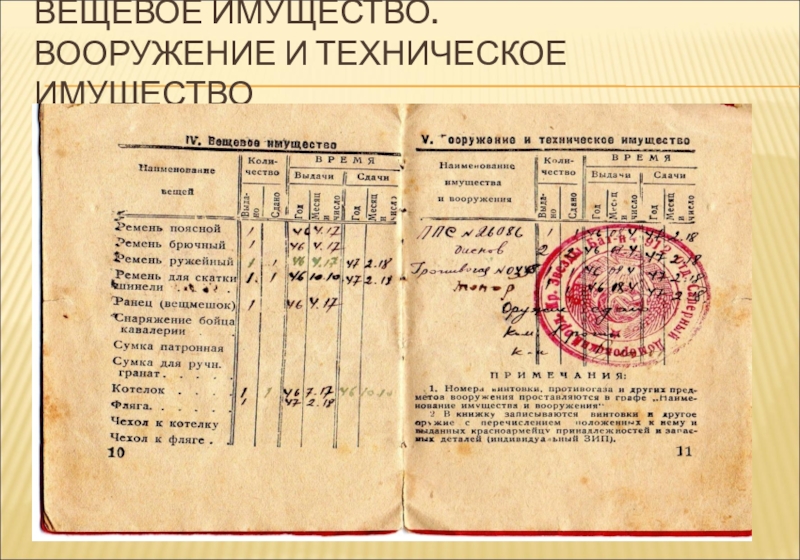 ВЕЩЕВОЕ ИМУЩЕСТВО.
ВООРУЖЕНИЕ И ТЕХНИЧЕСКОЕ
ИМУЩЕСТВО
IV. Вещевое имущество
Наименование вещей
Коли-
чество
ВРЕМЯ
Выдачи Сдачи
Выда-
но
Сдано
Год
Месяц
и
число
Год
Месяц
и
число
Ремень поясной 1 46 4.17
Ремень брючный 1 46 4.17
Ремень ружейный 1 1 46 4.17 47 2.18
Ремень для скатки
шинели 1 1 46 10.10 47 2.18
Ранец (вещмешок) 1 46 4.17
Снаряжение бойца
кавалерии
Сумка патронная
Сумка для ручн.
гранат
Котелок 1 1 46 7.17 46 10.10
Фляга 1 47 2.18
Чехол к котелку
Чехол к фляге
10
V. Вооружение и техническое имущество
Наименование
имущества
и вооружения
Коли-
чество
ВРЕМЯ
Выдачи Сдачи
Выда-
но
Сдано
Год
Месяц
и
число
Год
Месяц
и
число
ППС № 26086 1 1 46 47 2.18
дисков 2 46 47 2.18
Противогаз 46 47 2.18
Топор 46 47 2.18
ПРИМЕЧАНИЯ:
1. Номера винтовки, противогаза и других пред-
метов вооружения проставляются в графе „Наиме-
нование имущества и вооружения"
2 В книжку записываются винтовки и другое
оружие с перечислением положенных к нему и
выданных красноармейцу принадлежностей и запас-
ных деталей (индивидуальный ЗИП).
11